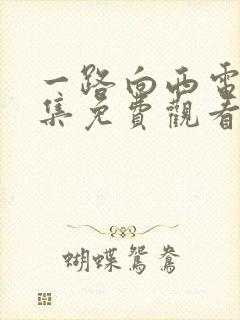 一路向西電
集免費觀看
蝴蝶鴛鴦